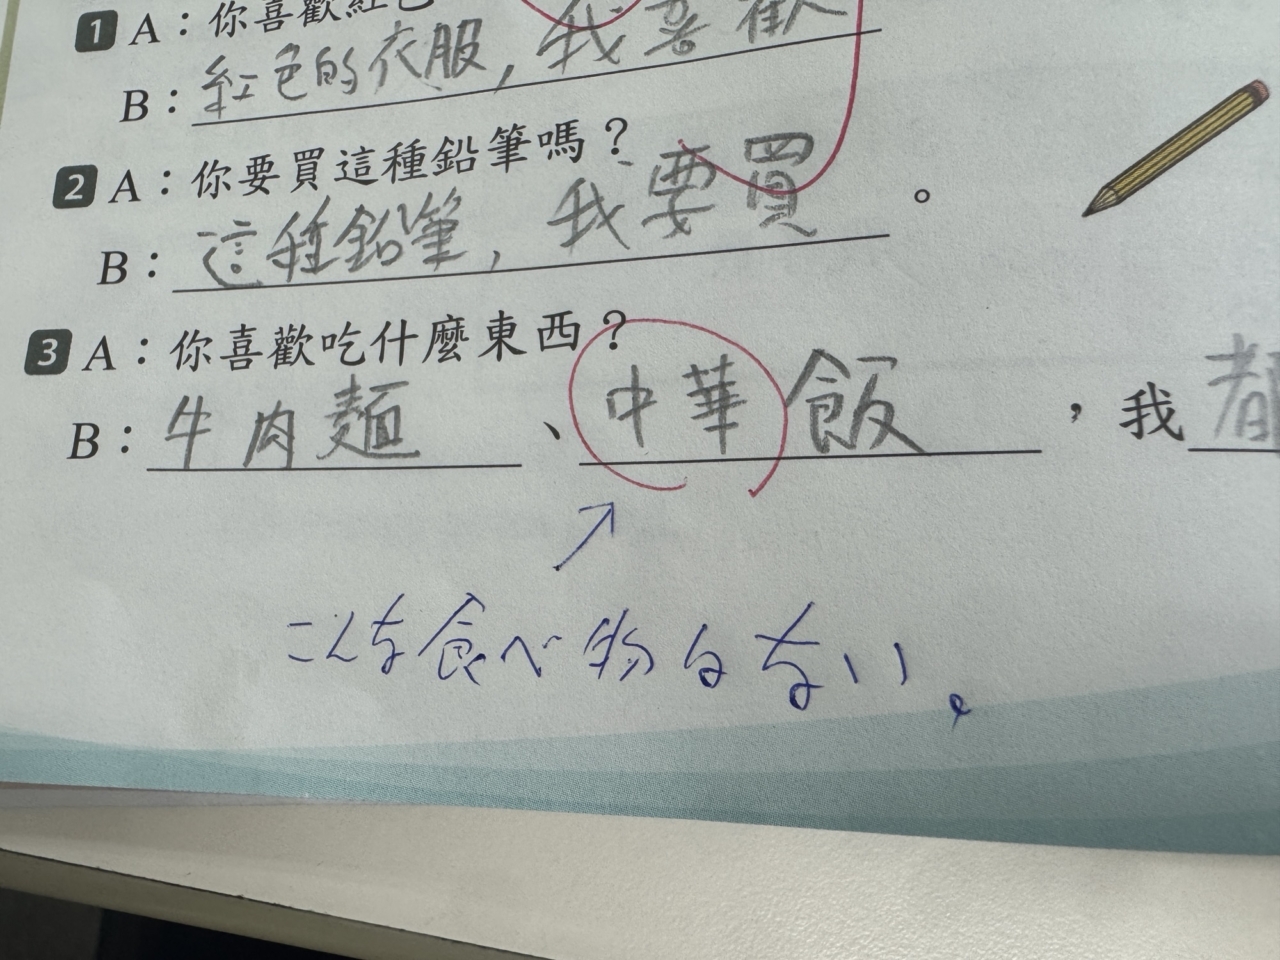 1 A：你喜歡紅色
B：紅色的衣服，我喜歡
2 A：你要買這種鉛筆嗎？
B：這種鉛筆，我要買。
3 A：你喜歡吃什麼東西？
B：牛肉麵、中華飯，我都
こんな食べ物はない。